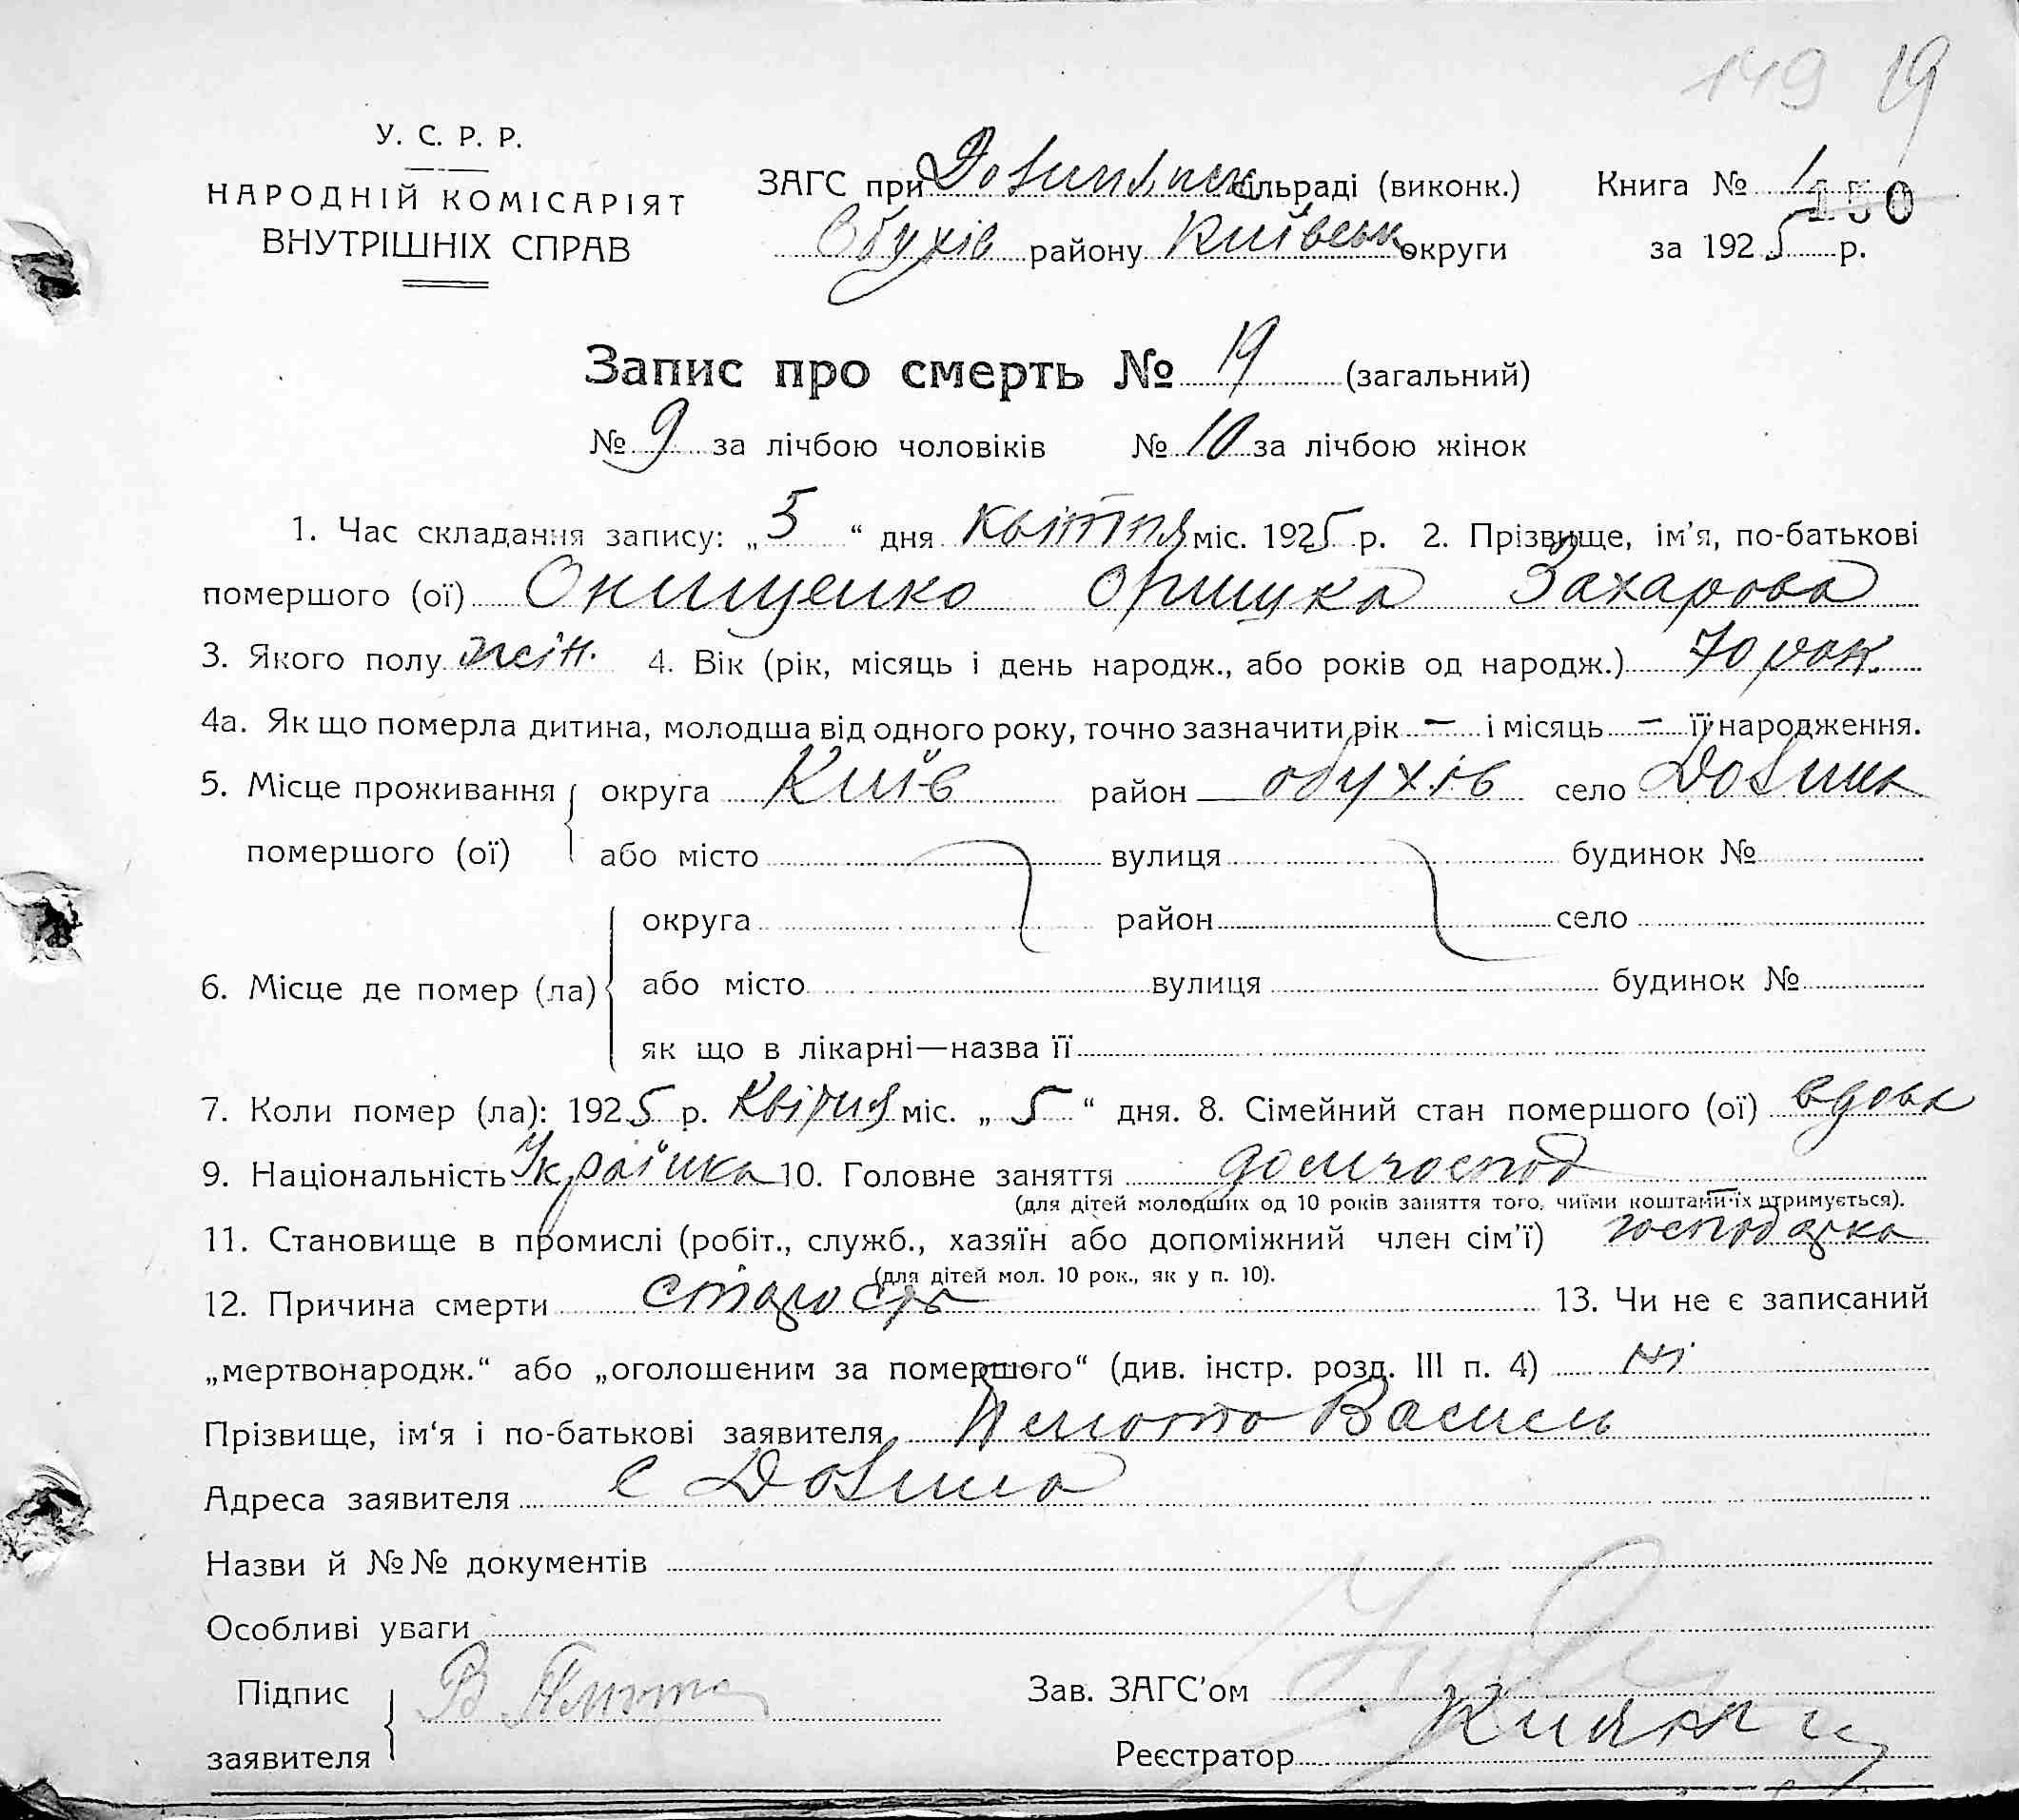 149 19
У. С. Р. Р.
НАРОДНІЙ КОМІСАРІЯТ
ВНУТРІШНІХ СПРАВ
ЗАГС при Долинянск сільраді (виконк.)
Обухів району Київськ округи
Книга № 1
150
за 1925 р.
Запис про смерть № 19 (загальний)
№ 9 за лічбою чоловіків № 10 за лічбою жінок
1. Час складання запису: „5“ дня квітня міс. 1925 р. 2. Прізвище, ім’я, по-батькові
помершого (ої) Онищенко Орищка Захарова
3. Якого полу жін. 4. Вік (рік, місяць і день народж., або років од народж.) 70 рок.
4а. Як що померла дитина, молодша від одного року, точно зазначити рік — і місяць — її народження.
5. Місце проживання помершого (ої) округа Київ район обухів село Долина
або місто вулиця будинок №
6. Місце де помер (ла) округа район село
або місто вулиця будинок №
як що в лікарні—назва її
7. Коли помер (ла): 1925 р. Квітня міс. „5“ дня. 8. Сімейний стан помершого (ої) вдова
9. Національність Українка 10. Головне заняття домгоспод
(для дітей молодших од 10 років заняття того, чиїми коштами їх утримується).
11. Становище в промислі (робіт., служб., хазяїн або допоміжний член сім’ї) господарка
(для дітей мол. 10 рок., як у п. 10).
12. Причина смерти старость 13. Чи не є записаний
„мертвонародж.“ або „оголошеним за помершого“ (див. інстр. розд. III п. 4) ні
Прізвище, ім‘я і по-батькові заявителя Василь
Адреса заявителя с Долина
Назви й №№ документів
Особливі уваги
Підпис заявителя В
Зав. ЗАГС’ом
Реєстратор